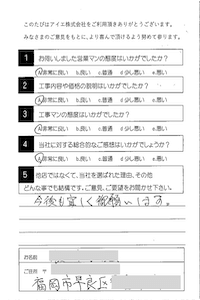 このたびはアイエ株式会社をご利用頂きありがとうございます。
みなさまのご意見をもとに、より喜んで頂けるよう努めて参ります。
1 お伺いしました営業マンの態度はいかがでしたか?
a非常に良い b.良い c.普通 d.少し悪い e.悪い
2 工事内容や価格の説明はいかがでしたか?
a非常に良い b.良い c.普通 d.少し悪い e.悪い
3 工事マンの態度はいかがでしたか?
a非常に良い b.良い c.普通 d.少し悪い e.悪い
4 当社に対する総合的なご感想はいかがでしょうか?
a非常に良い b.良い c.普通 d.少し悪い e.悪い
5 他店ではなくて、当社を選ばれた理由、その他
どんな事でも結構です。ご意見、ご要望をお聞かせ下さい。
今後も宜しく御願いします。
お名前
ご住所 〒
福岡市早良区